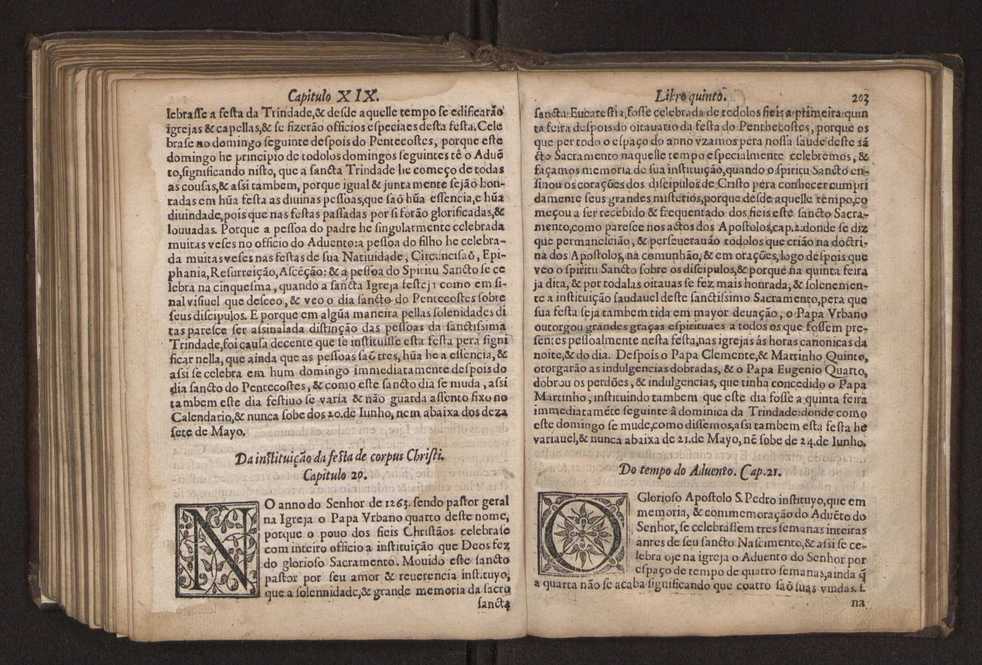 Capitulo XIX.
lebrasse a festa da Trindade,& desde aquelle tempo se edificarão
igrejas & capellas,& se fizerão officios especiaes desta festa. Cele
brase ao domingo seguinte despois do Pentecostes, porque este
domingo he principio de todolos domingos seguintes tê o Aduẽ
to,significando nisto, que a sancta Trindade he começo de todas
as cousas,& assi tambem, porque igual & juntamente sejão hon-
radas em hũa festa as diuinas pessoas,que saõ hũa essencia,e hũa
diuindade,pois que nas festas passadas por si forão glorificadas,&
louuadas. Porque a pessoa do padre he singularmente celebrada
muitas veses no officio do Aduento:a pessoa do filho he celebra-
da muitas veses nas festas de sua Natiuidade, Circuncisaõ, Epi-
phania,Resurreição,Ascẽção: & a pessoa do Spiritu Sancto se ce
lebra na cinquesma, quando a sancta Igreja festeja como em si-
nal visiuel que desceo,& veo o dia sancto do Pentecostes sobre
seus discipulos. E porque em algũa maneira pellas solenidades di
tas paresce ser assinalada distinção das pessoas da sanctissima
Trindade,foi causa decente que se instituisse esta festa pera signi
ficar nella, que ainda que as pessoas saõ tres, hũa he a essencia,&
assi se celebra em hum domingo immediatamente despois do
dia sancto do Pentecostes,& como este sancto dia se muda,assi
tambem este dia festiuo se varia & não guarda assento fixo no
Calendario,& nunca sobe dos 20.de Iunho,nem abaixa dos deza
sete de Mayo.
Da instituição da festa de corpus Christi.
Capitulo 20.
NO anno do Senhor de 1263. sendo pastor geral
na Igreja o Papa Vrbano quarto deste nome,
porque o pouo dos fieis Christãos celebrase
com inteiro officio a instituição que Deos fez
do glorioso Sacramento. Mouido este sancto
pastor por seu amor & reuerencia instituyo,
que a solennidade,& grande memoria da sacro
sancta
Libro quinto.
203
sancta Eucarestia,fosse celebrada de todolos fieis a primeira quin
ta feira despois do oitauario da festa do Penthecostes, porque os
que per todo o espaço do anno vzamos pera nossa saude deste sã
cto Sacramento naquelle tempo especialmente celebremos, &
façamos memoria de sua instituição,quando o spiritu Sancto en-
sinou os corações dos discipulos de Cristo pera conhecer cumpri
damente seus grandes misterios,porque desde aquelle tempo,co
meçou a ser recebido & frequentado dos fieis este sancto Sacra-
mento,como parese nos actos dos Apostolos,cap.2.donde se diz
que permanescião, & perseuerauão todolos que crião na doctri-
na dos Apostolos,na comunhão,& em orações,logo despois que
veo o spiritu Sancto sobre os discipulos,& porque na quinta feira
ja dita,& por todalas oitauas se fez mais honrada,& solenemen-
te a instituição saudauel deste sanctissimo Sacramento,pera que
sua festa seja tambem tida em mayor deuação, o Papa Vrbano
outorgou grandes graças espirituaes a todos os que fossem pre-
sentes pessoalmente nesta festa,nas igrejas ás horas canonicas da
noite,& do dia. Despois o Papa Clemente,& Martinho Quinto,
otorgarão as indulgencias dobradas, & o Papa Eugenio Quarto,
dobrou os perdões, & indulgencias, que tinha concedido o Papa
Martinho,instituindo tambem que este dia fosse a quinta feira
immediatamẽte seguinte â dominica da Trindade:donde como
este domingo se mude,como dissemos,assi tambem esta festa he
variauel,& nunca abaixa de 21.de Mayo, nẽ sobe de 24.de Iunho.
Do tempo do Aduento. Cap.21.
O Glorioso Apostolo S.Pedro instituyo,que em
memoria, & commemoração do Aduẽto do
Senhor, se celebrassem tres semanas inteiras
antes de seu sancto Nascimento,& assi se ce-
lebra oje na igreja o Aduento do Senhor por
espaço de tempo de quatro semanas,ainda q̃
a quarta não se acaba significando que coatro saõ suas vindas. s.
na